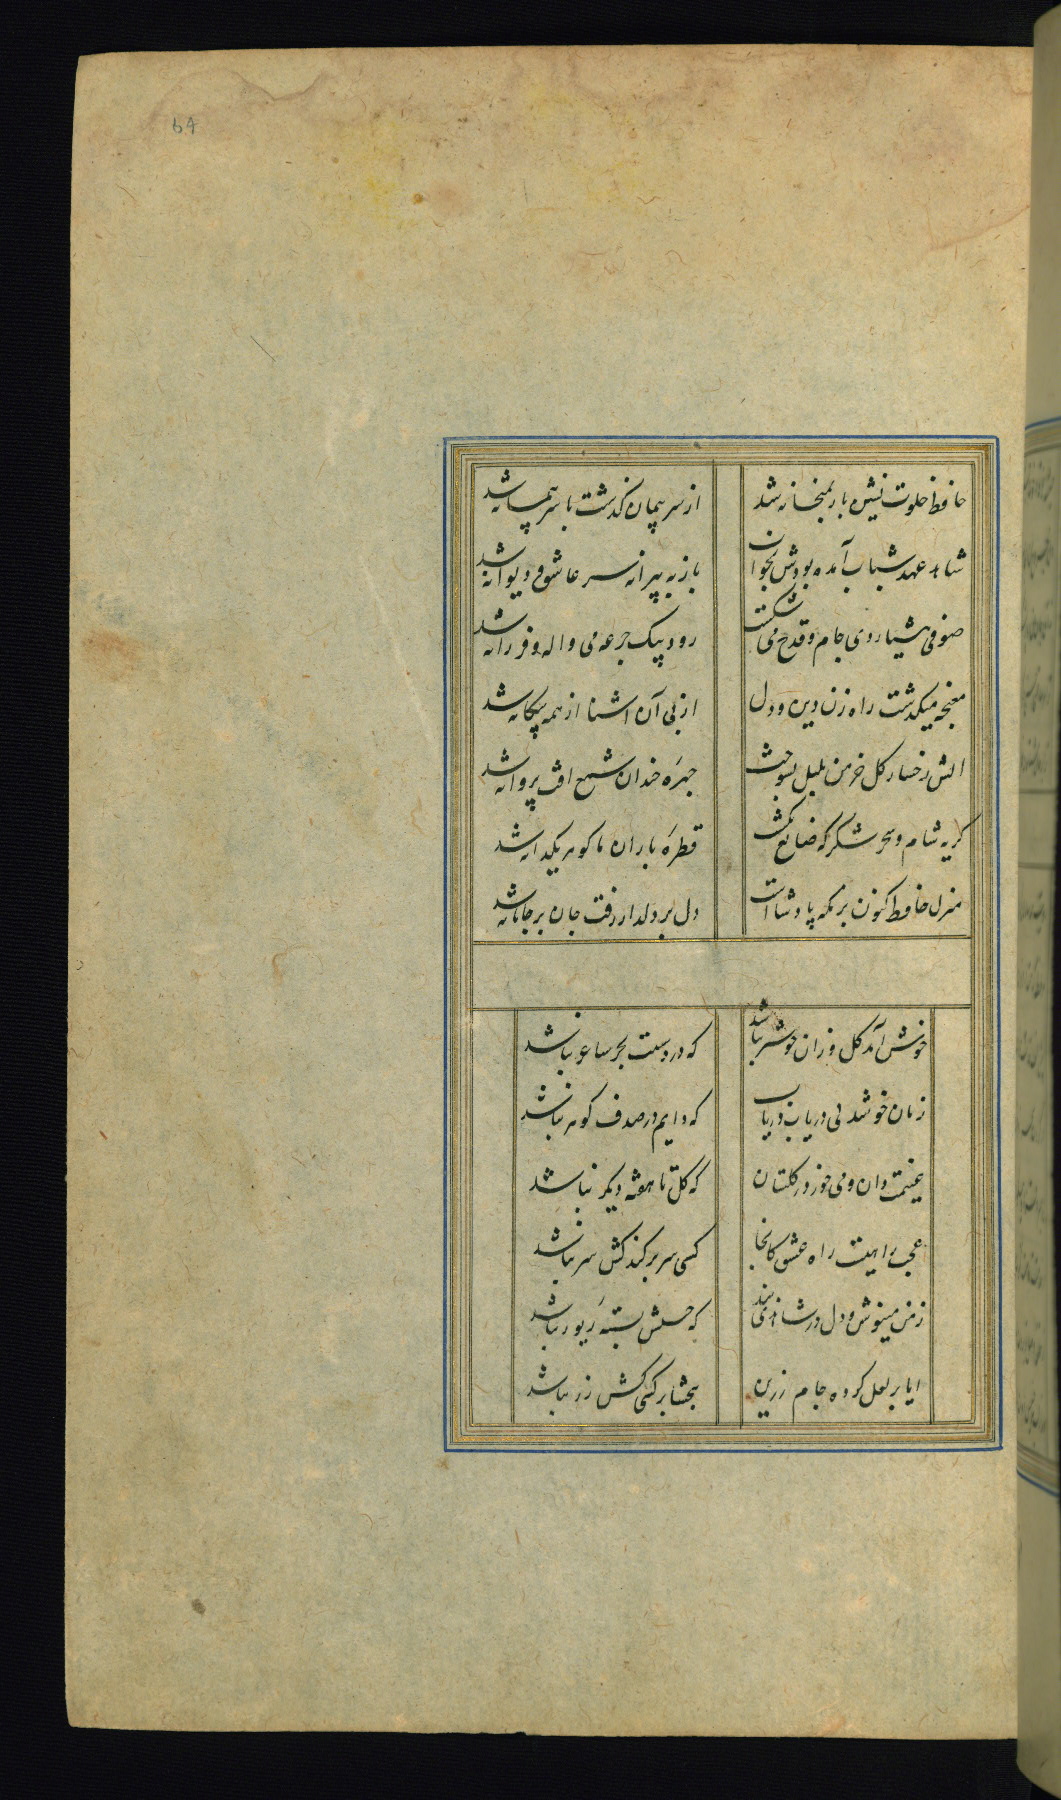 64
حافظ خلوت نشین باز بمیخانه شد از سر پیمان گذشت با سر پیمانه شد
شاهد عهد شباب آمده بودش بخواب باز به پیرانه سر عاشق و دیوانه شد
صوفی هشیار دی جام و قدح می شکست دود بیک جرعه می واله و فرزانه شد
مغبچه میکذشت راه زن دین و دل از پی آن اشنا از همه بیکانه شد
اتش رخسار کل خرمن بلبل بسوخت چهره خندان شمع افت پروانه شد
کریه شام و سحر شکر که ضایع نکشت قطره باران ما کوهر یکدانه شد
منزل حافظ کنون بزمکه پادشاست دل بر دلدار رفت جان بر جانانه شد
خوش آمد کل و زان خوشتر نباشد که در دستت بجز ساغر نباشد
زمان خوشدلی دریاب دریاب که دایم در صدف کوهر نباشد
غنیمت دان و می خور در کلستان که کل تا هفته دیکر نباشد
عجب راهیت راه عشق کانجا کسی سر بر کند کش سر نباشد
ز من مینوش و دل در شاهدی بند که حسنش بسته زیور نباشد
ایا پر لعل کرده جام زرین ببخشا بر کسی کش زر نباشد